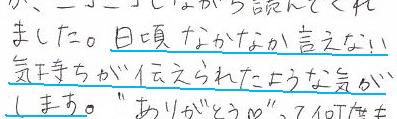 が、ニコニコしながら読んでくれ
ました。日頃なかなか言えない
気持ちが伝えられたような気が
します。“ありがとう♡”って何度も